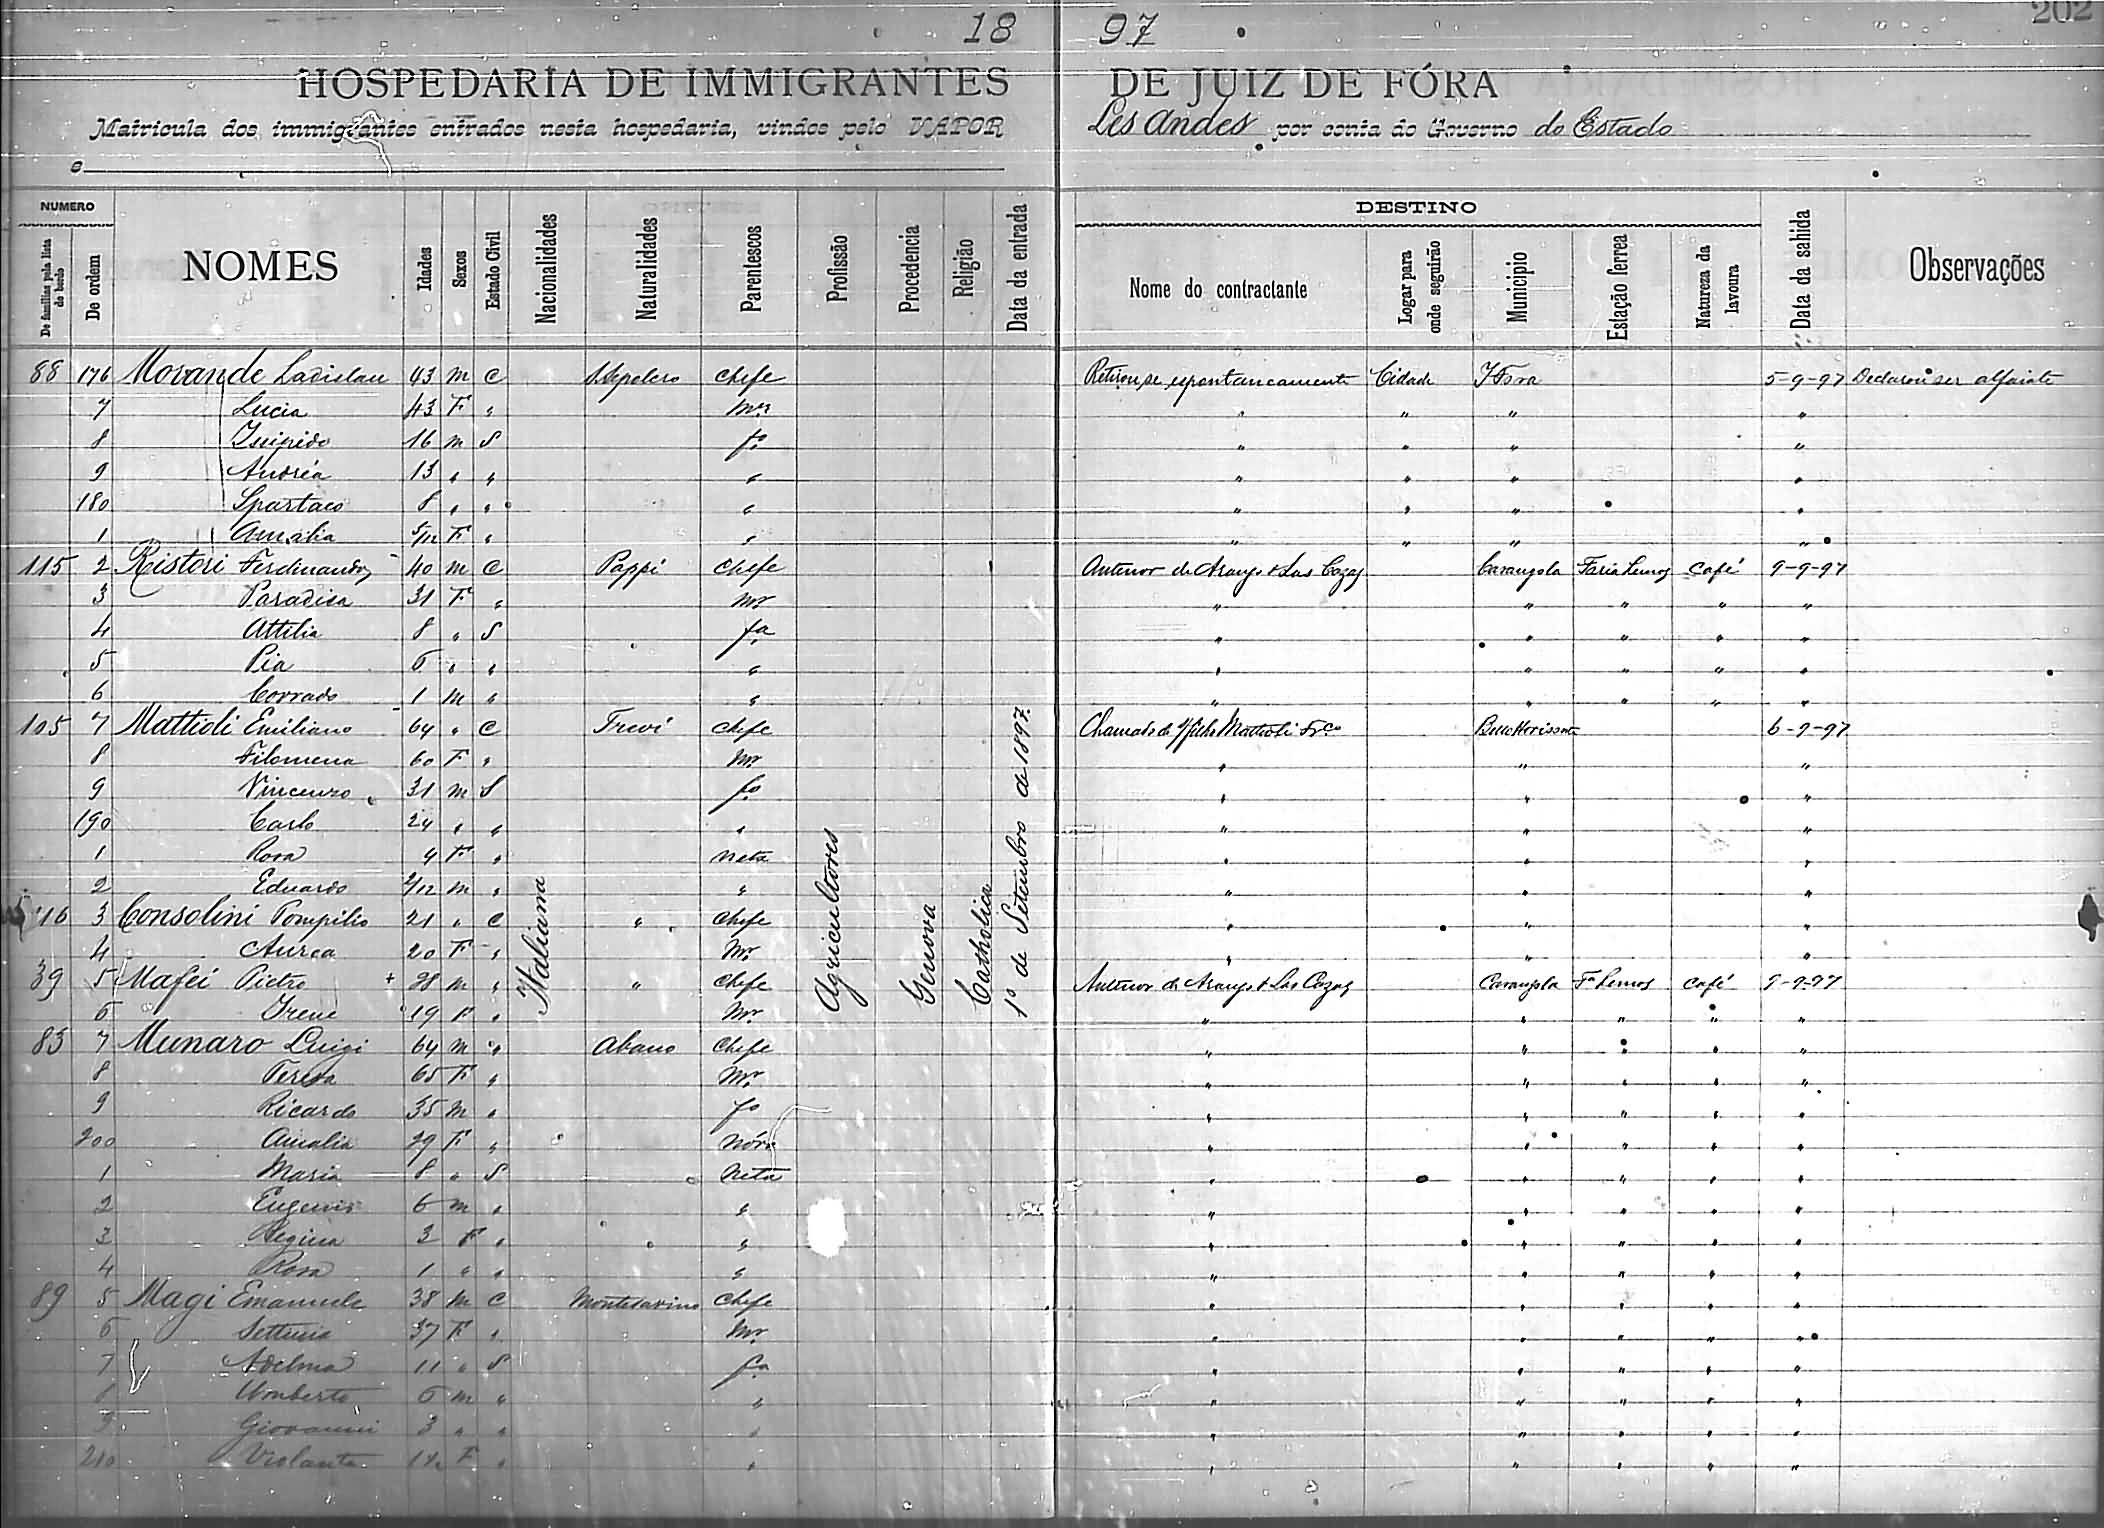 202
18 97
HOSPEDARIA DE IMMIGRANTES DE JUIZ DE FÓRA
Matricula dos immigrantes entrados nesta hospedaria, vindos pelo VAPOR Les Andes por conta do Governo do Estado
e
NUMERO DESTINO
De familias pela lista de bordo De ordem NOMES Idades Sexos Estado Civil Nacionalidades Naturalidades Parentescos Profissão Procedencia Religião Data da entrada Nome do contractante Logar para onde seguirão Municipio Estação ferrea Natureza da lavoura Data da sahida Observações
88 176 Morande Ladislau 43 M C S. Sepolcro Chefe Retirou-se espontaneamente Cidade J Fora 5-9-97 Declarou ser alfaiate
7 Lucia 43 F " Mer " " " "
8 16 M S fo " " " "
9 Andréa 13 " " " " " " "
180 Spartaco 8 " " " " " " "
1 Amalia 5/12 F " " " " " "
115 2 Ristori Ferdinando 40 M C Poppi Chefe Antenor de Araujo & Las Cazas Carangola Faria Lemos Café 9-9-97
3 Paradisa 31 F " Mer " " " " "
4 Attilia 8 " S fa " " " " "
5 Pia 6 " " " " " " " "
6 Corrado 1 M " " " " " " "
105 7 Mattioli Emiliano 64 " C Trevi Chefe Chamado do filho Mattioli Frco Bello Horisonte 6-9-97
8 Filomena 60 F " Mer " " "
9 Vincenzo 31 M S fo " " "
190 Carlo 24 " " " " " "
1 Rosa 4 F " Neta " " "
2 Eduardo /12 M " " " " "
116 3 Consolini Pompilio 21 " C " Chefe " " "
4 Aurea 20 F " Mer " " "
39 5 Mafei Pietro + 28 M " " Chefe Antenor de Araujo & Las Cazas Carangola Fa Lemos Café 9-9-97
6 Irene 19 F " Mer " " " " "
83 7 Munaro Luigi 64 M " Abano Chefe " " " " "
8 Teresa 65 F " Mer " " " " "
9 Ricardo 35 M " fo " " " " "
200 Amalia 29 F " Nóra " " " " "
1 Maria 8 " S Neta " " " " "
2 Eugenio 6 M " " " " " " "
3 Regina 3 F " " " " " " "
4 Rosa 1 " " " " " " " "
89 5 Magi Emanuele 38 M C Montesavino Chefe " " " " "
6 Settimia 37 F " Mer " " " " "
7 Adelma 11 " S fa " " " " "
8 Umberto 6 M " " " " " " "
9 Giovanni 3 " " " " " " " "
210 Violante F " " " " " " "
Italiana
Agricultores
Genova
Catholica
1º de Setembro de 1897